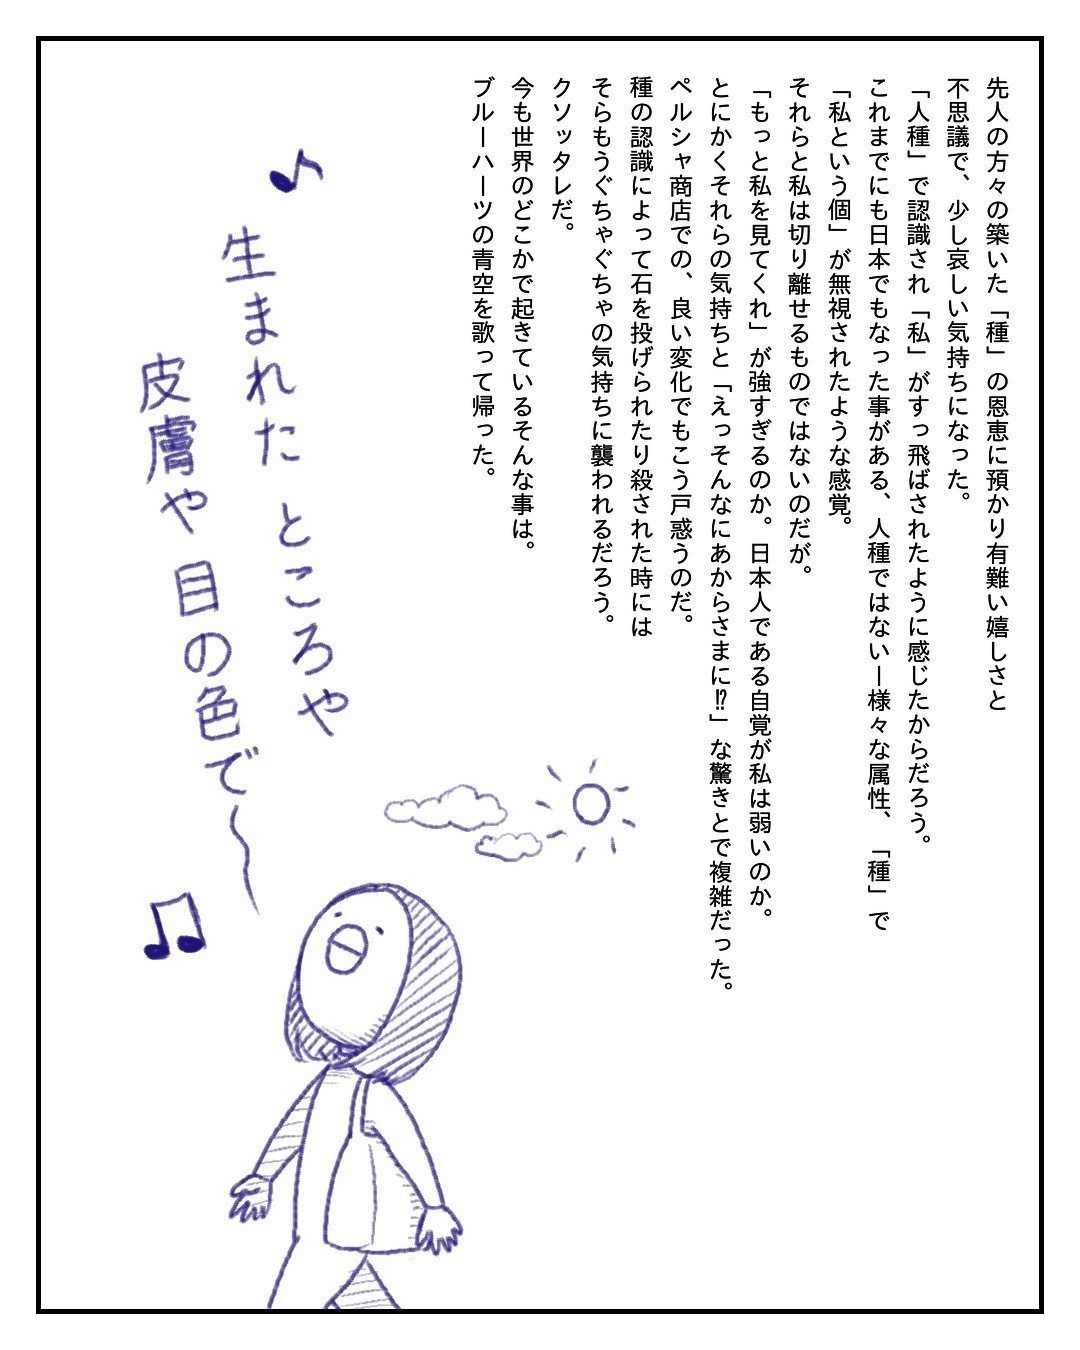 先人の方々の築いた「種」の恩恵に預かり有難い嬉しさと
不思議で、少し哀しい気持ちになった。
「人種」で認識され「私」がすっ飛ばされたように感じたからだろう。
これまでにも日本でもなった事がある、人種ではないー様々な属性、「種」で
「私という個」が無視されたような感覚。
それらと私は切り離せるものではないのだが。
「もっと私を見てくれ」が強すぎるのか。日本人である自覚が私は弱いのか。
とにかくそれらの気持ちと「えっそんなにあからさまに⁉」な驚きとで複雑だった。
ペルシャ商店での、良い変化でもこう戸惑うのだ。
種の認識によって石を投げられたり殺された時には
そらもうぐちゃぐちゃの気持ちに襲われるだろう。
クソッタレだ。
今も世界のどこかで起きているそんな事は。
ブルーハーツの青空を歌って帰った。
♪生まれたところや
皮膚や目の色で〜♫